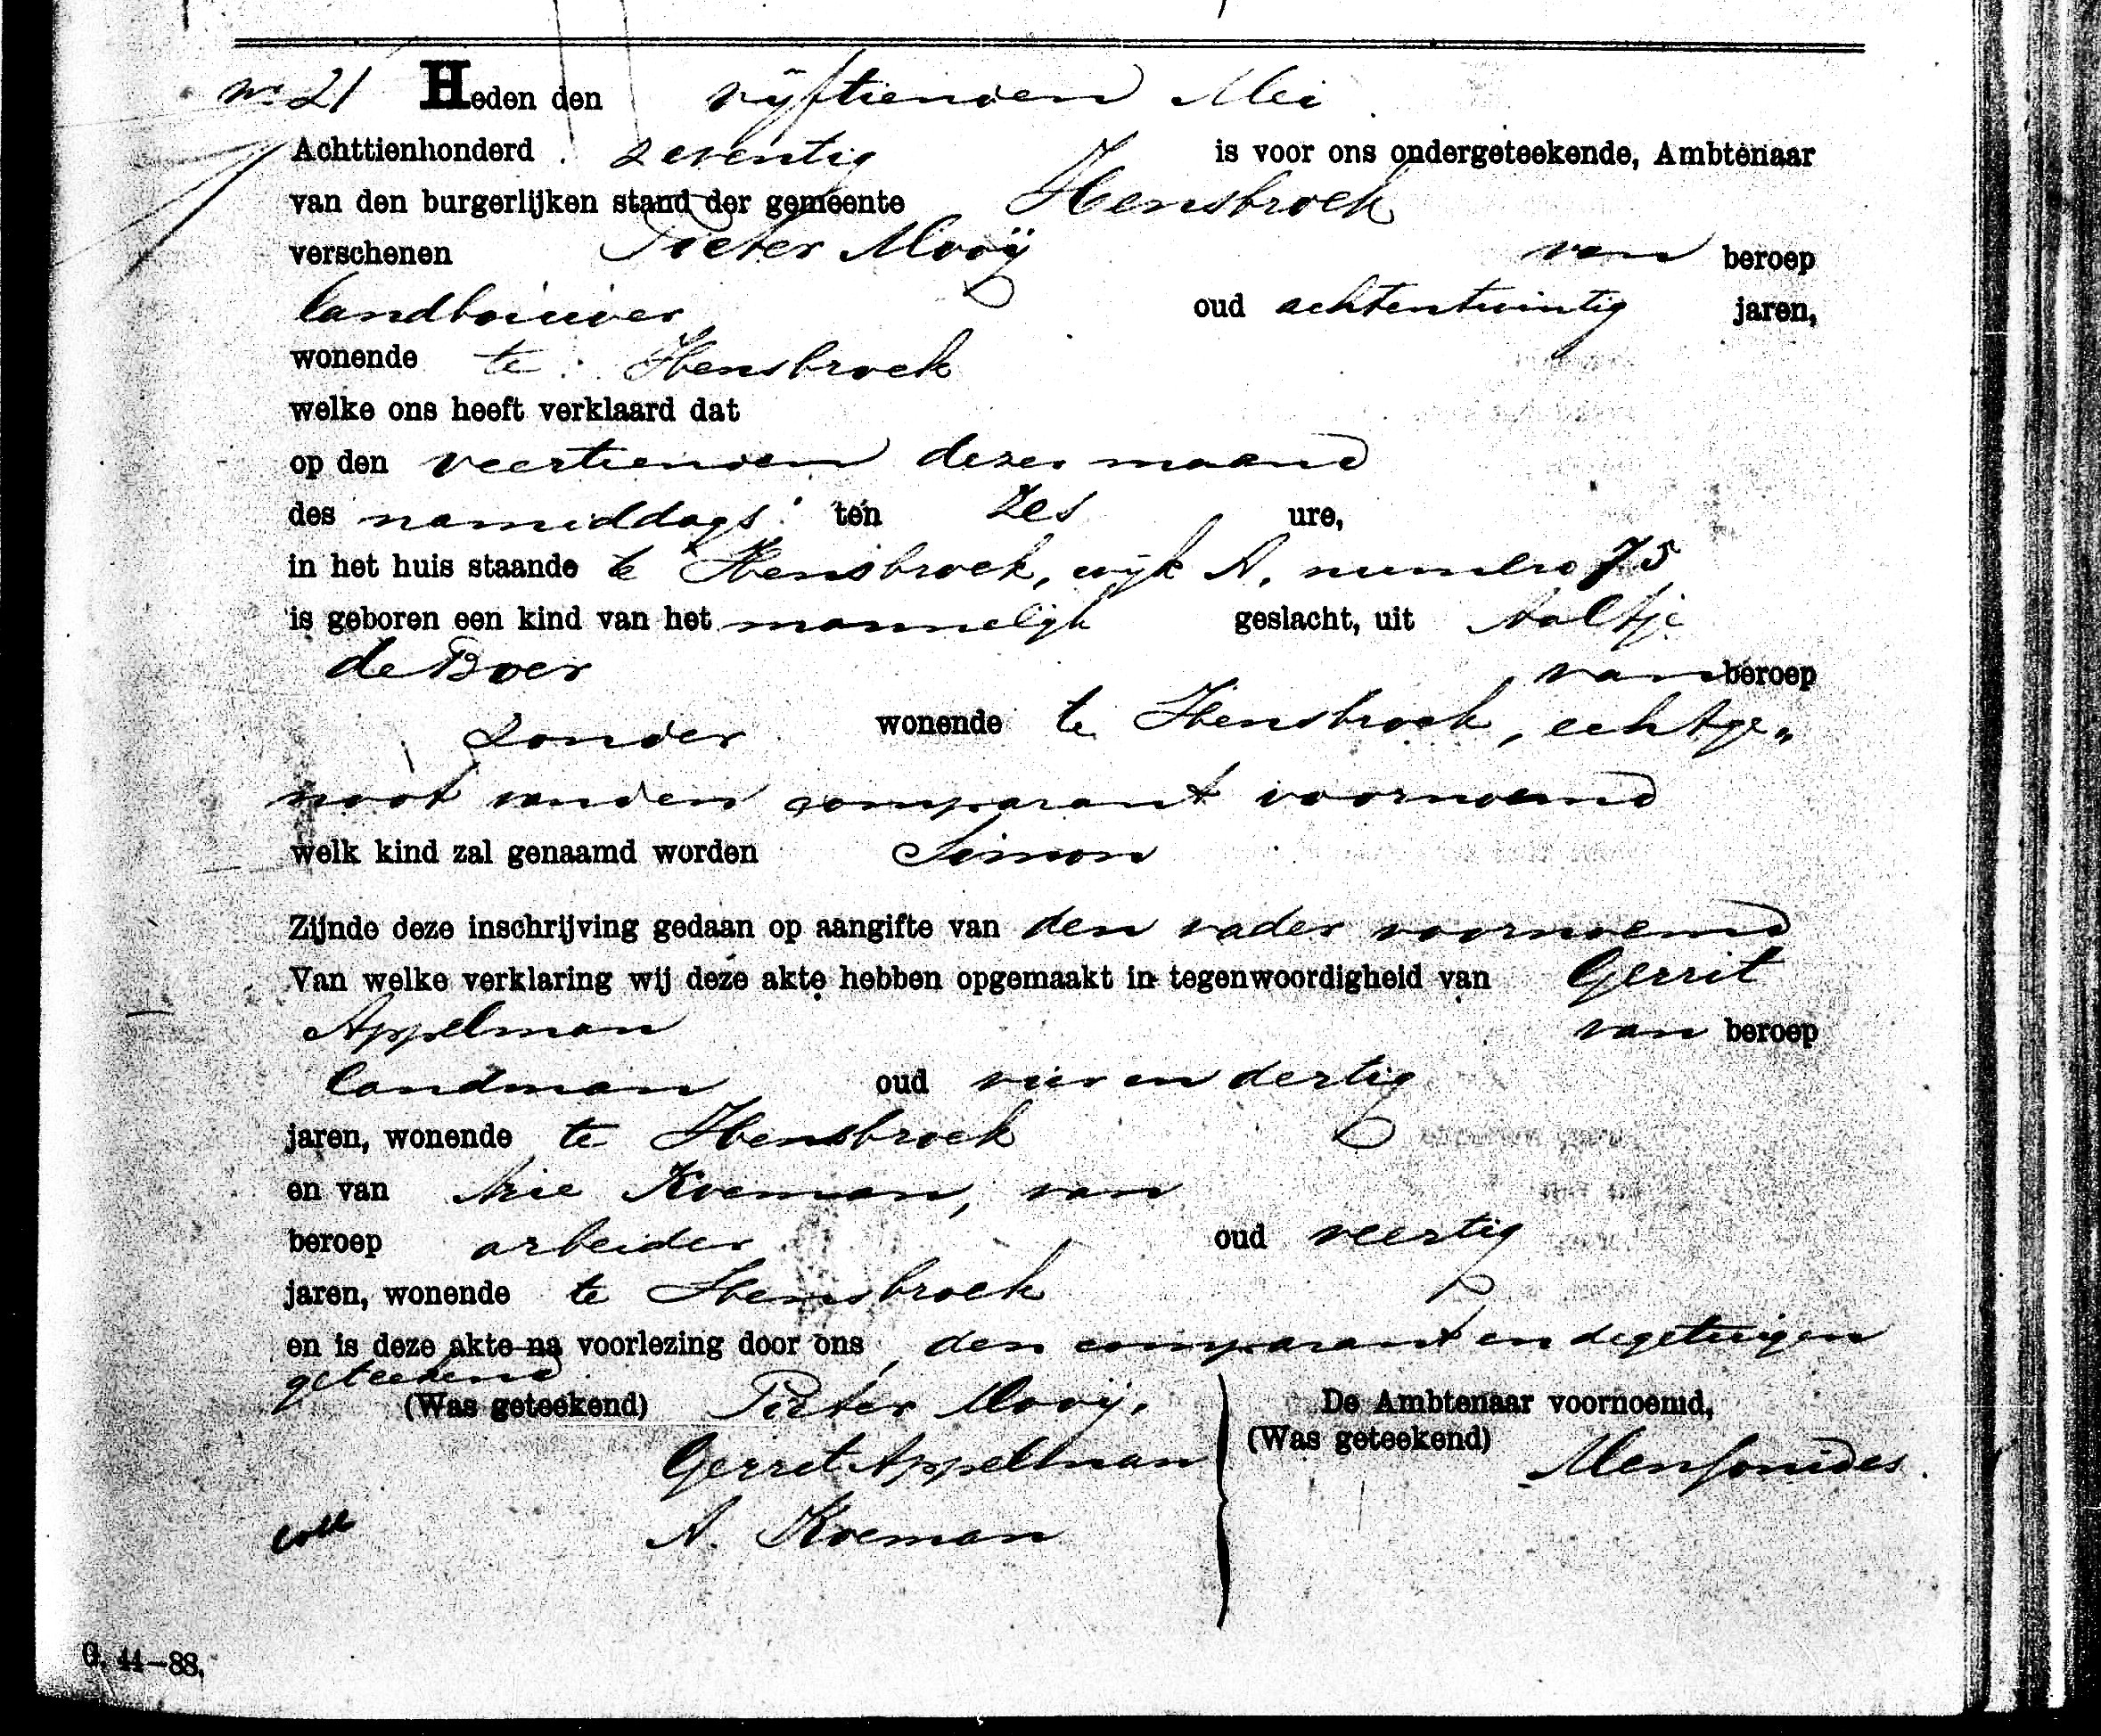 No 21 Heden den vijftienden Mei
Achttienhonderd zeventig is voor ons ondergeteekende, Ambtenaar
van den burgerlijken stand der gemeente Hensbroek
verschenen Pieter Mooij van beroep
landbouwer oud achtentwintig jaren,
wonende te Hensbroek
welke ons heeft verklaard dat
op den veertienden dezer maand
des namiddags ten zes ure,
in het huis staande te Hensbroek, wijk A, numero 75
is geboren een kind van het mannelijk geslacht, uit Aaltje
de Boer van beroep
zonder wonende te Hensbroek, echtge„
noot van den comparant voornoemd
welk kind zal genaamd worden Simon
Zijnde deze inschrijving gedaan op aangifte van den vader voornoemd
Van welke verklaring wij deze akte hebben opgemaakt in tegenwoordigheid van Gerrit
Appelman van beroep
landman oud vier en dertig
jaren, wonende te Hensbroek
en van Arie Koeman, van
beroep arbeider oud veertig
jaren, wonende te Hensbroek
en is deze akte na voorlezing door ons, den comparant en de getuigen
geteekend.
(Was geteekend) Pieter Mooij, De Ambtenaar voornoemd,
(Was geteekend)
Gerret Appelman Mensonides.
A. Koeman
Coll
G. 44—88.